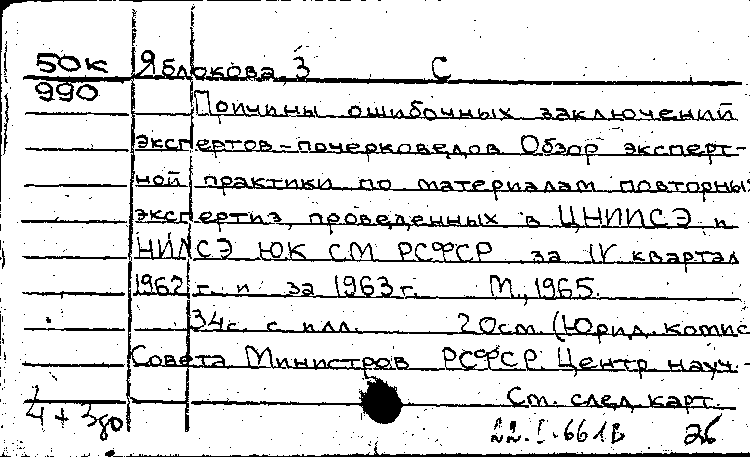 50к Яблокова, З С
990
Причины ошибочных заключений
экспертов-почерковедов Обзор эксперт-
ной практики по материалам повторны
экспертиз, проведенных в ЦНИИСЭ и
НИЛСЭ ЮК СМ РСФСР за IV квартал
1962 г. и за 1963 г. М., 1965.
34с. с илл. 20см. (Юрид. комис
Совета Министров РСФСР. Центр науч.-
См. след карт.
4 + 3до
22.I.661В 26